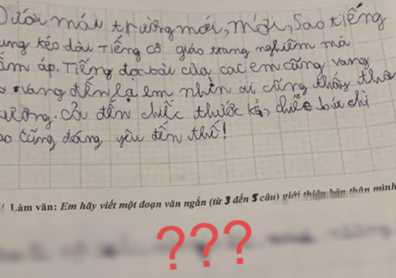 Dưới mái trường mới, mới, sao tiếng
ung kéo dài Tiếng cô giáo trang nghiêm mà
ấm áp. Tiếng đọc bài của các em cũng vang
vang đến lạ em nhìn ai cũng thấy thâ
ương. Cả đến chiếc thước kẻ, chiếc bút chì
ao cũng đáng yêu đến thế!
Làm văn: Em hãy viết một đoạn văn ngắn (từ 3 đến 5 câu) giới thiệu bản thân mình
???